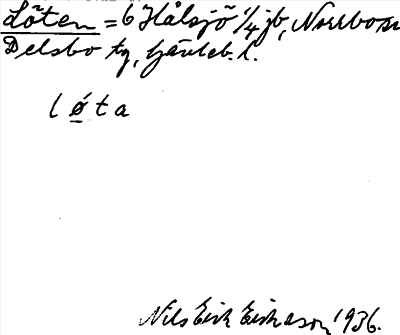 Löten = 6 Hålsjö 1/4 jb, Norrbo sn
Delsbo tg, Gävleb. l.
l ǿ t a
Nils Eirik Eirikason 1936.